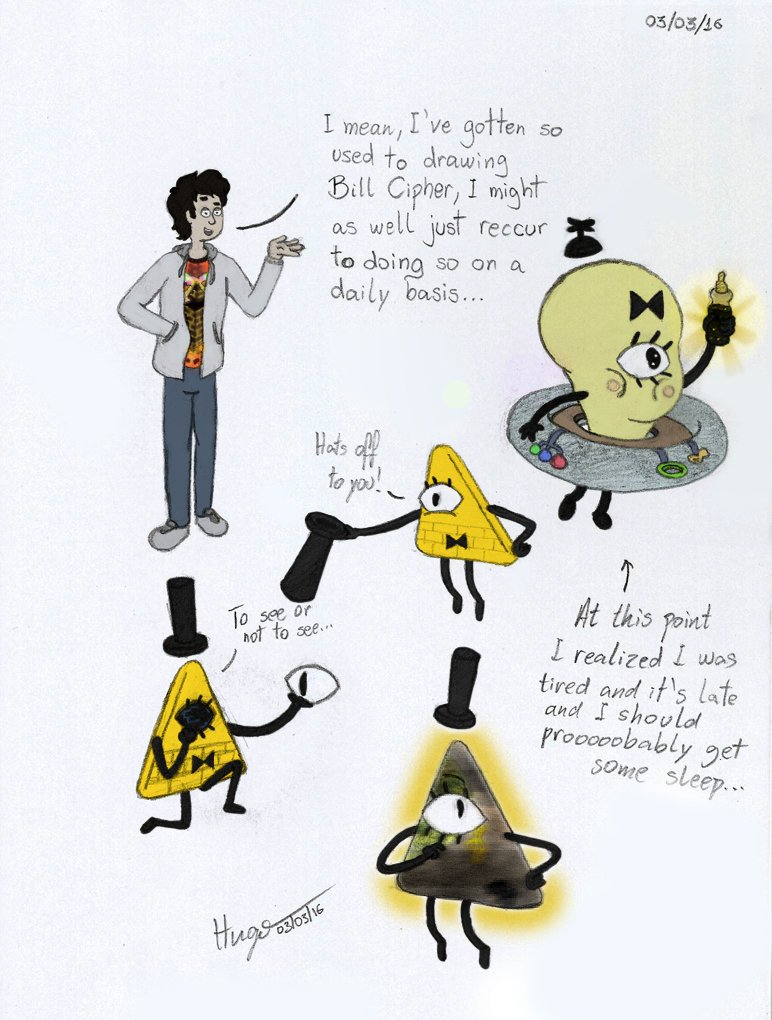 03/03/16
I mean, I've gotten so
used to drawing
Bill Cipher, I might
as well just reccur
to doing so on a
daily basis...
Hats off
to you!
To see or
not to see...
At this point
I realized I was
tired and it's late
and I should
prooooobably get
some sleep...
Hugo
03/03/16